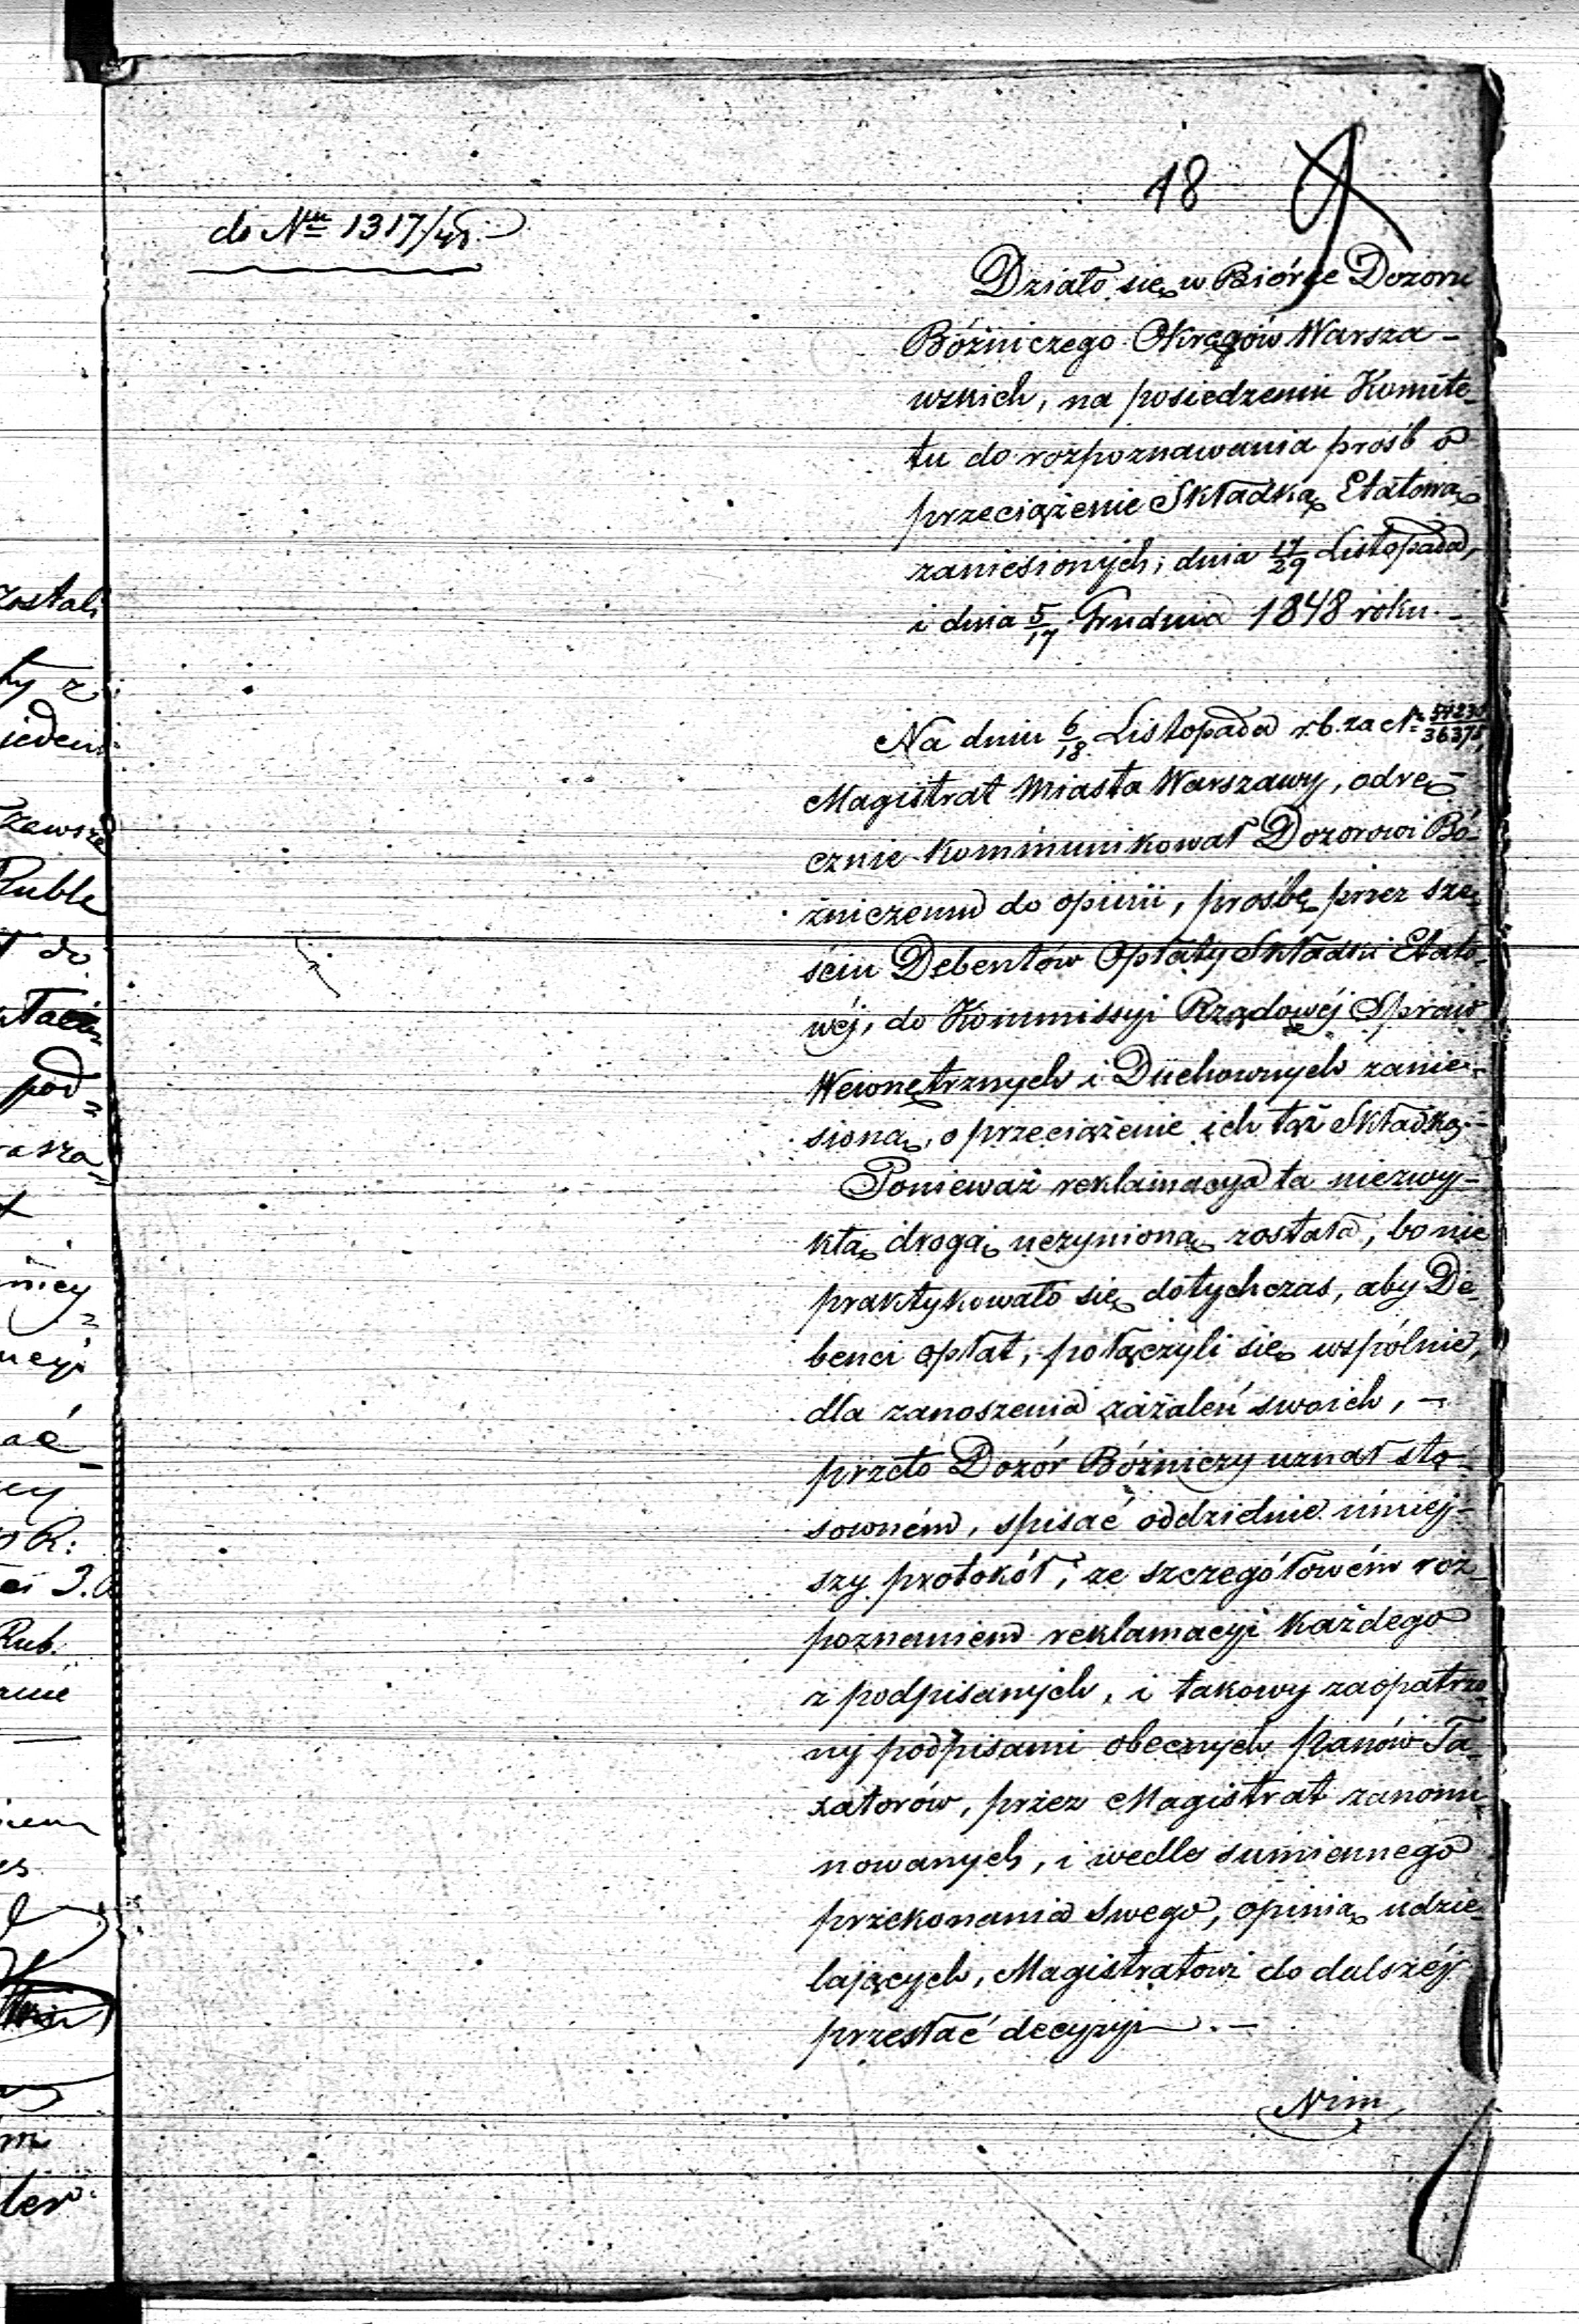 18
do Nru 1317/48.
Działo się w Biórze Dozoru
Bóżniczego Okręgów Warsza-
wskich, na posiedzeniu Komite-
tu do rozpoznawania prośb o
przeciążenie Składką Etatową
zaniesionych; dnia 17/29 Listopada,
i dnia 5/17 Grudnia 1848 roku. -
Na dniu 6/18 Listopada r. b. za N
Magistrat Miasta Warszawy, odrę-
cznie kommunikował Dozorowi Bó-
żniczemu do opinii, prośbę przez sze-
ściu Debentów Opłaty Składki Etato-
wéj, do Kommissyi Rządowéj Spraw
Wewnętrznych i Duchownych zanie-
sioną, o przeciążenie ich tąż Składką. -
Ponieważ reklamacya ta niezwy-
kłą drogą uczynioną została, bo nie
praktykowało się dotychczas, aby De-
benci opłat, połączyli się wspólnie,
dla zanoszenia zażaleń swoich, -
przeto Dozór Bóżniczy uznał sto-
sowném, spisać oddzielnie niniej-
szy protokół, ze szczegółowém roz-
poznaniem reklamacyi każdego
z podpisanych, i takowy zaopatrzo-
ny podpisami obecnych Panów Ta-
xatorów, przez Magistrat zanomi-
nowanych, i wedle sumiennego
przekonania swego, opinią udzie-
lających, Magistratowi do dalszéj
przesłać decyzyi. -
Nim
zostali
ty z
jeden
Ruble
do
pod-
R:
Rub.